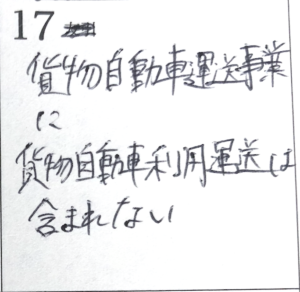 17
貨物自動車運送事業
に
貨物自動車利用運送は
含まれない